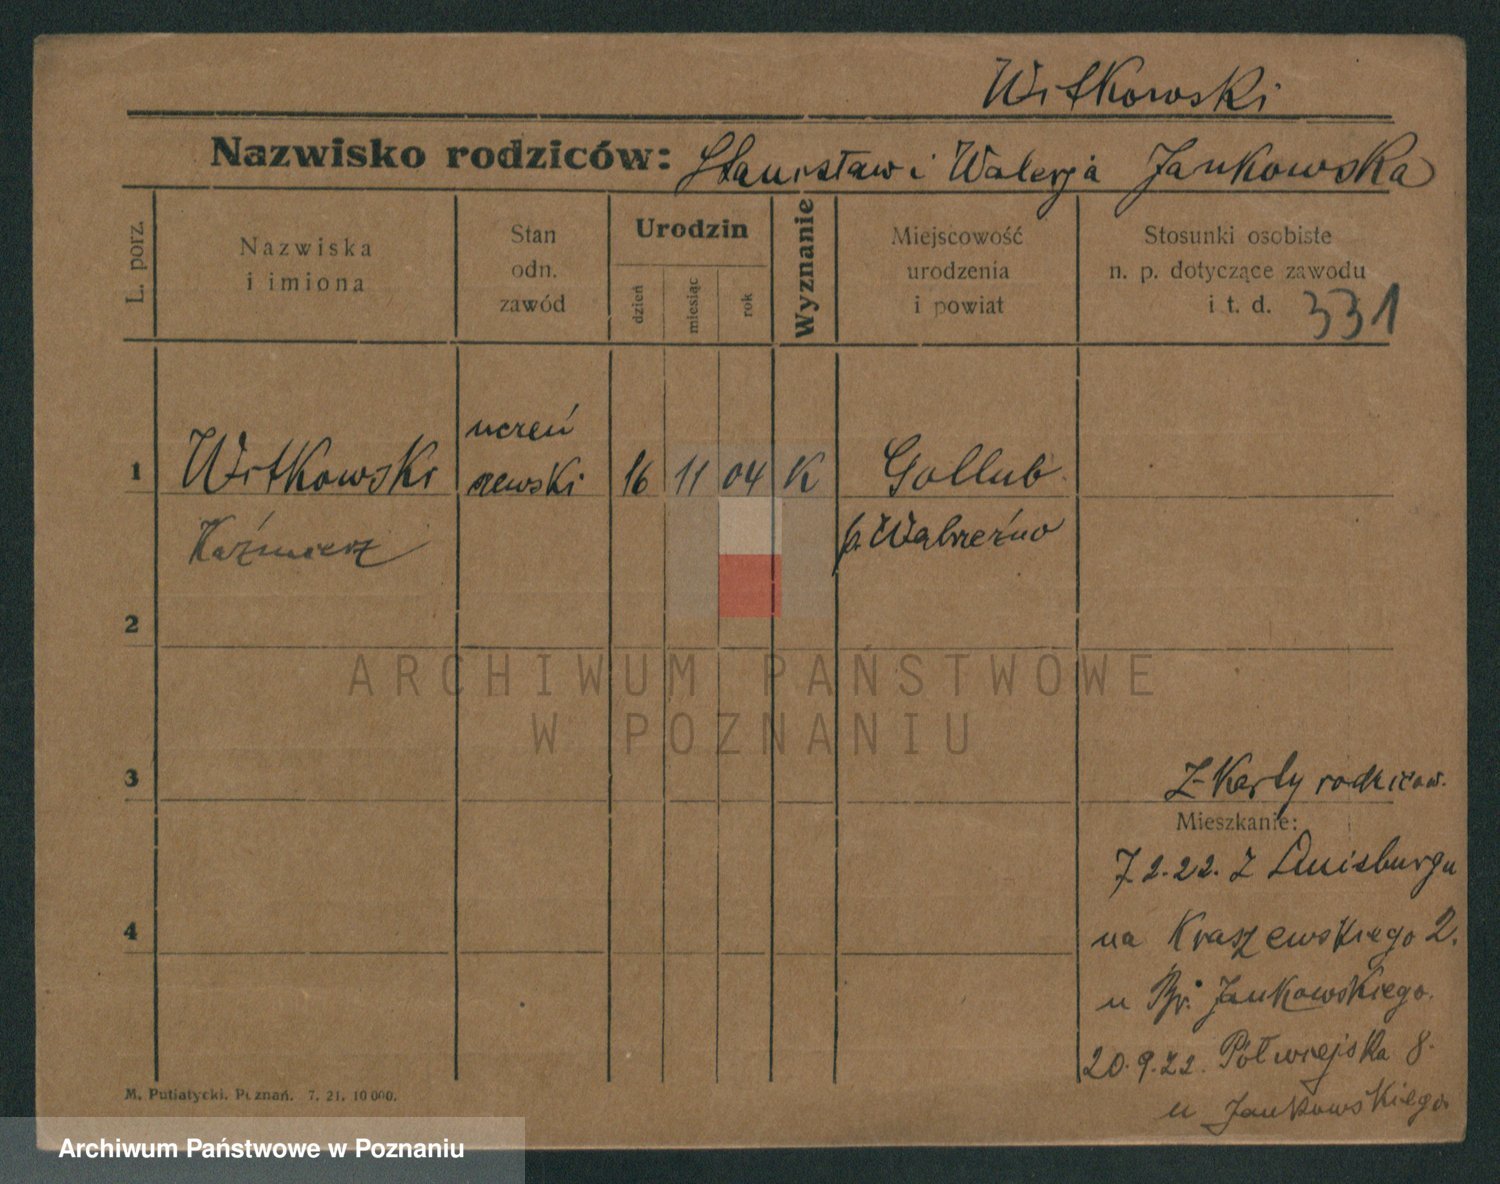 Witkowski
Nazwisko rodziców: Stanisław i Walerja Jankowska
L. porz.
Nazwiska
i imiona
Stan
odn.
zawód
Urodzin
dzień
miesiąc
rok
Wyznanie
Miejscowość
urodzenia
i powiat
Stosunki osobiste
n. p. dotyczące zawodu
i t. d.
331
1 Witkowski uczeń szewski 16 11 04 K Gollub
Kaźmierz p. Wąbrzeźno
2
ARCHIWUM PAŃSTWOWE
W POZNANIU
3
Z Karty rodziców.
Mieszkanie:
7.2.22. z Duisburgu
4
na Kraszewskiego 2.
u Jankowskiego.
20.9.22. Półwiejska 8.
u Jankowskiego
M. Putiatycki. Poznań. 7. 21. 10 000.
Archiwum Państwowe w Poznaniu